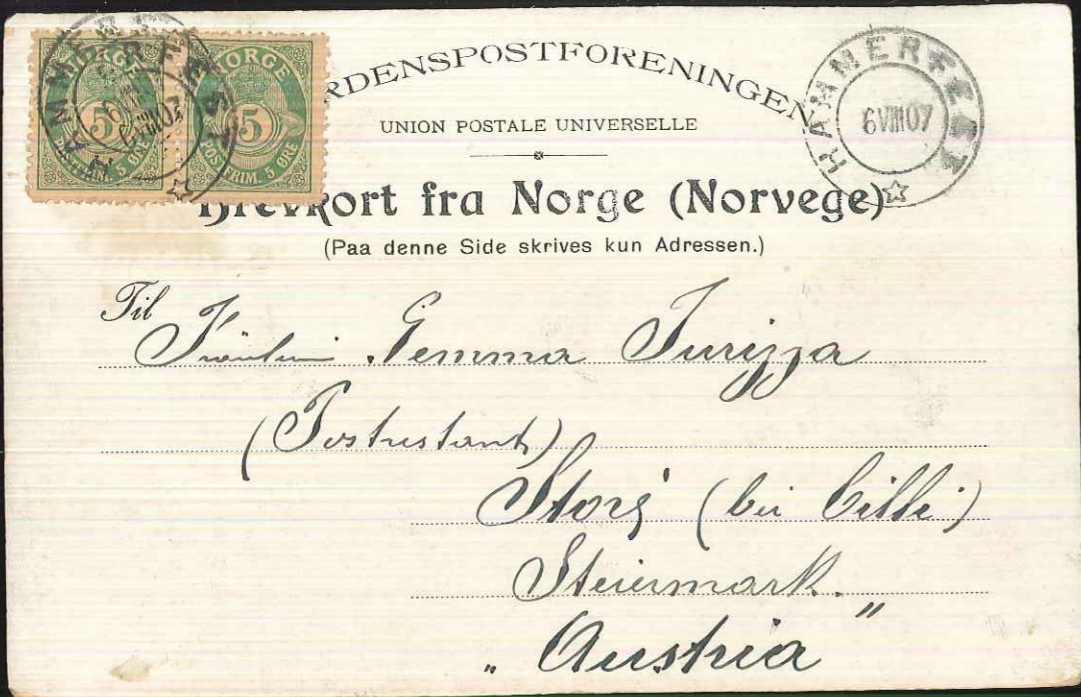 NORGE
5
POSTFRIM. 5 ØRE
NORGE
5
POSTFRIM. 5 ØRE
HAMMERFEST
6 VIII 07
VERDENSPOSTFORENINGEN
UNION POSTALE UNIVERSELLE
HAMMERFEST
6 VIII 07
Brevkort fra Norge (Norvege)
(Paa denne Side skrives kun Adressen.)
Til
Fräulein Gemma Jurizza
(Postrestant)
Storé (bei Cilli)
Steiermark.
„Austria”